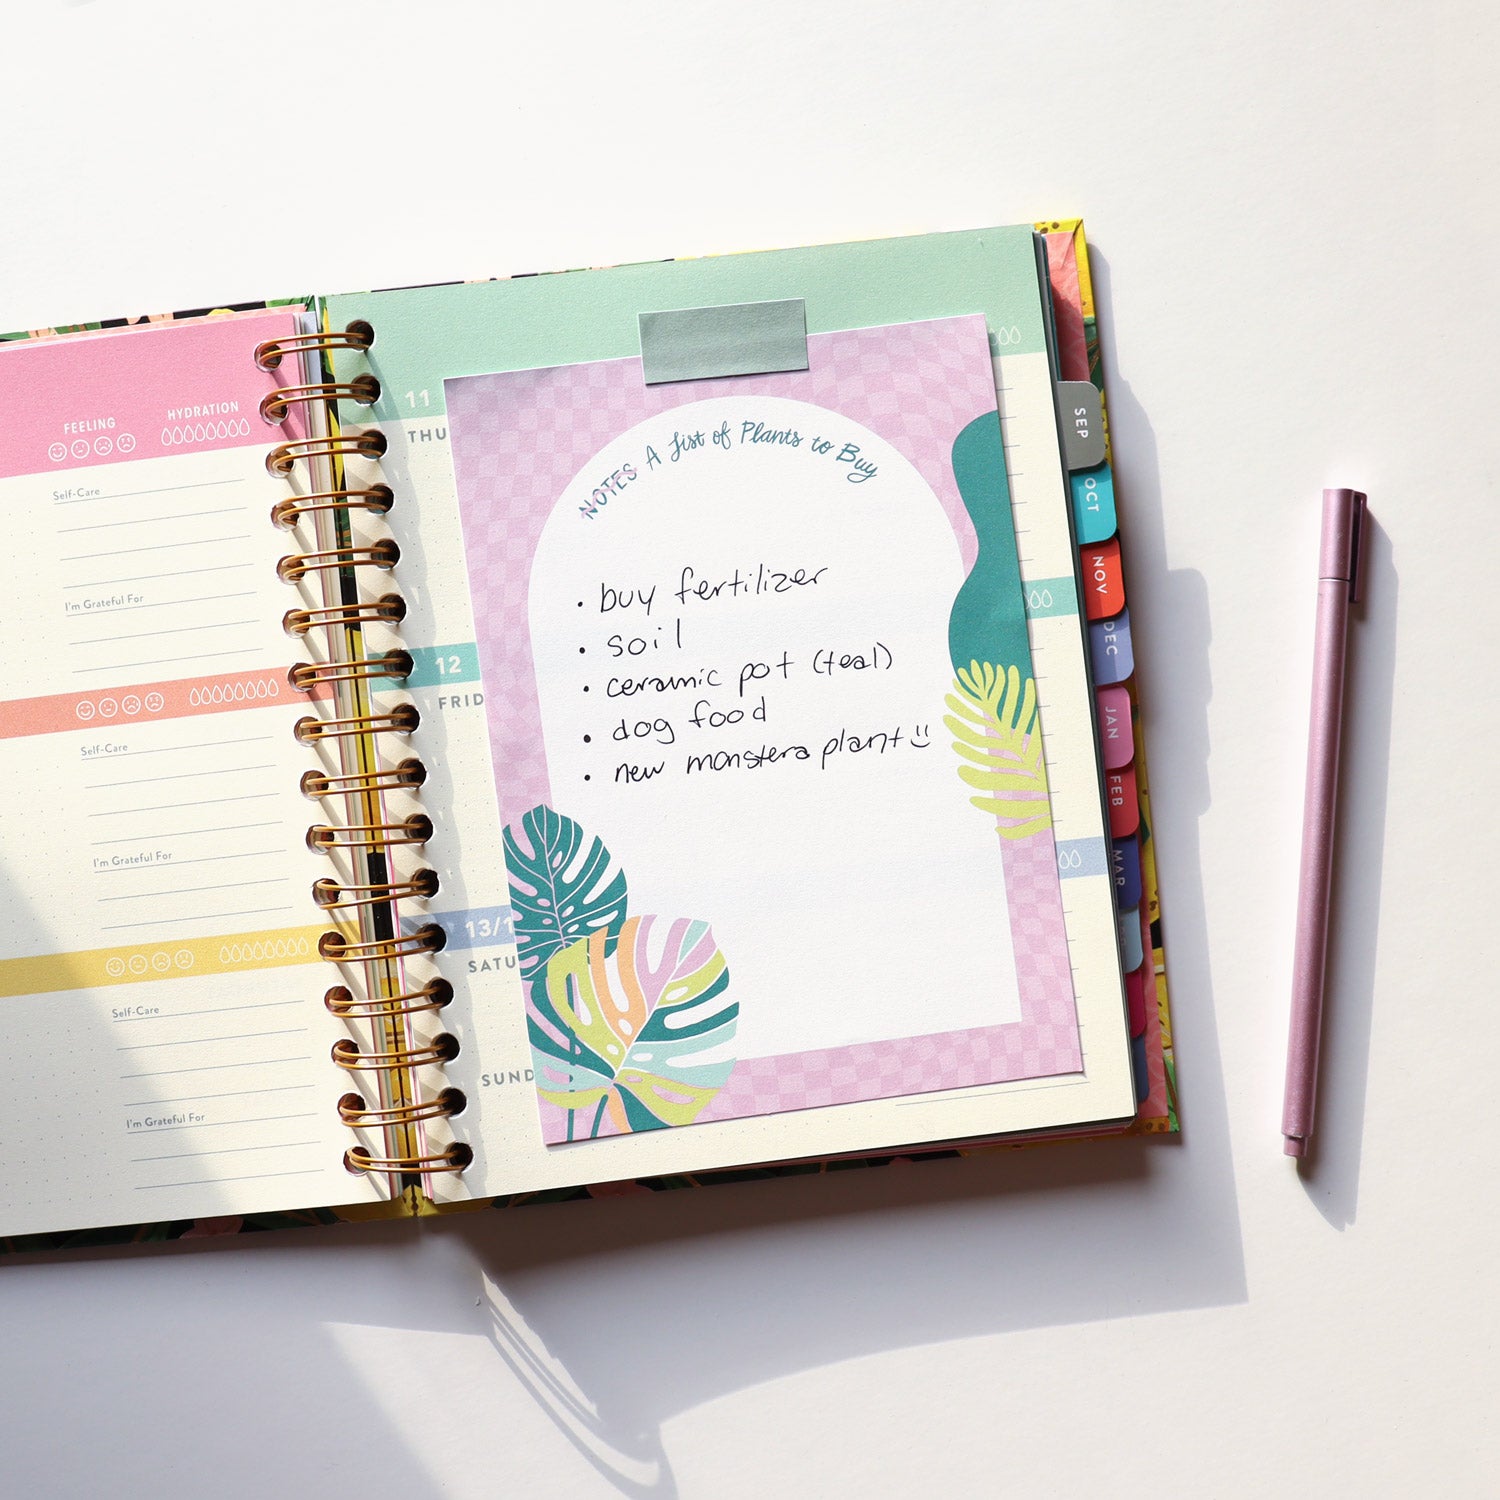 FEELING
HYDRATION
Self-Care
I'm Grateful For
Self-Care
I'm Grateful For
Self-Care
I'm Grateful For
11
THU
12
FRID
13/1
SATU
SUND
NOTES A List of Plants to Buy
• buy fertilizer
• soil
• ceramic pot (teal)
• dog food
• new monstera plant
SEP
OCT
NOV
DEC
JAN
FEB
MAR